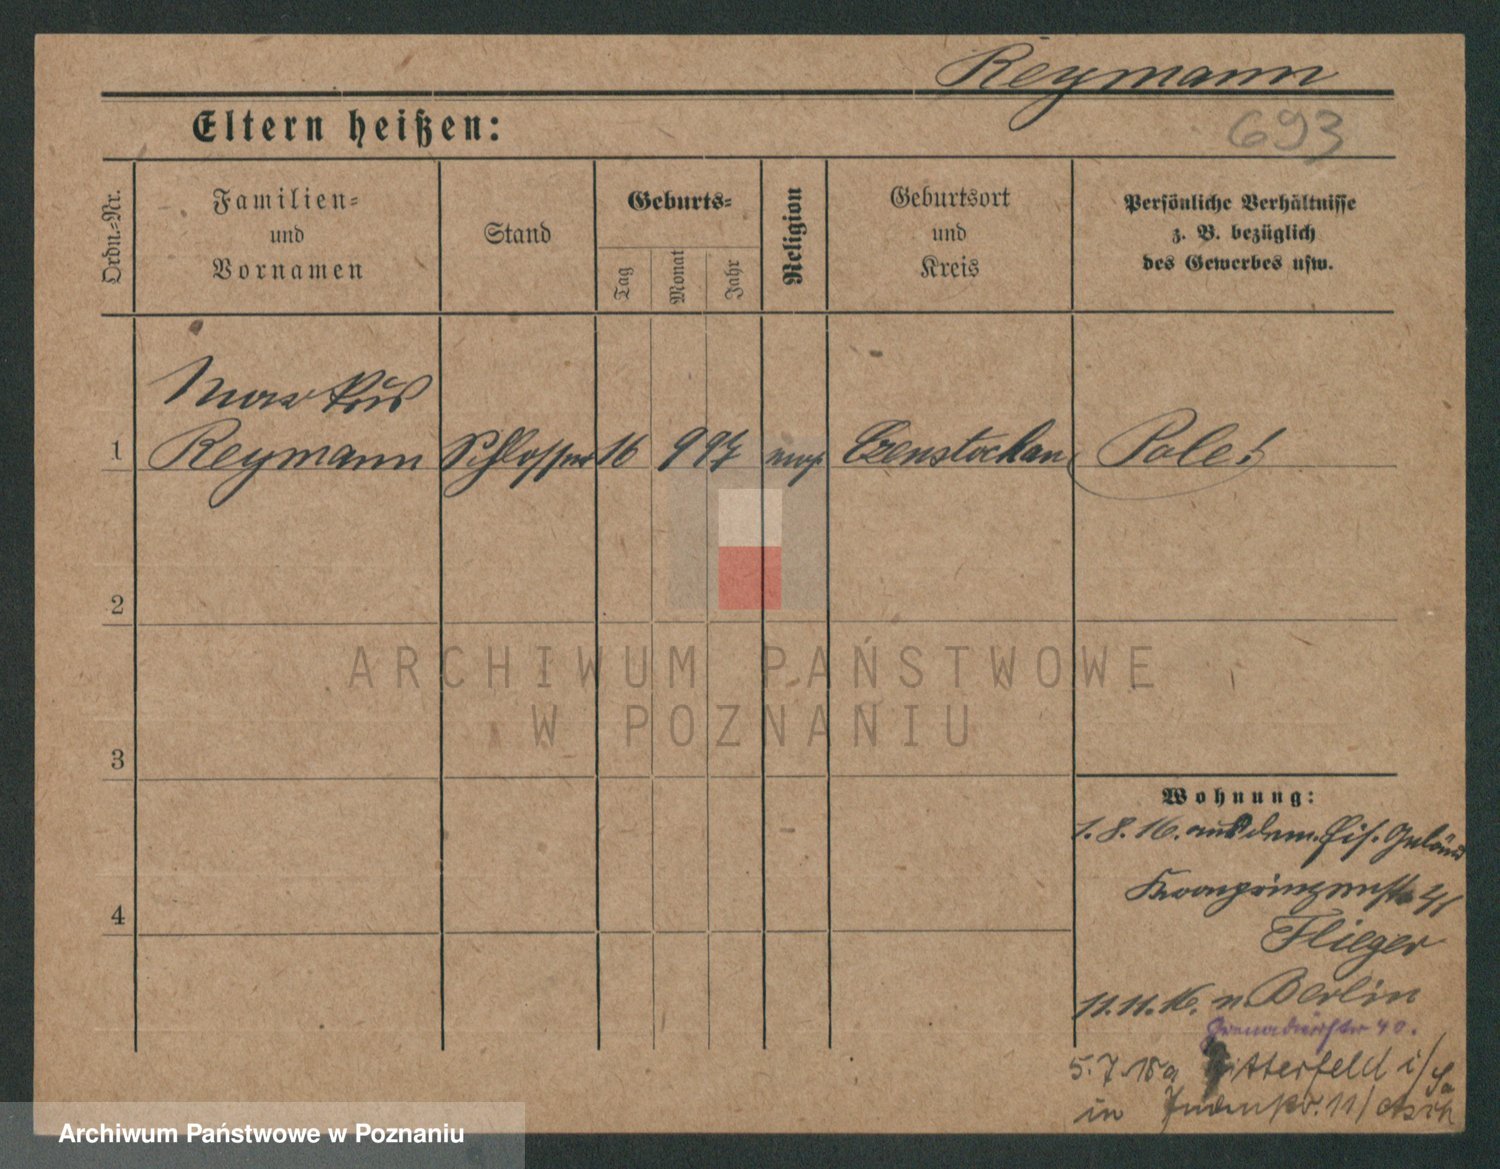 Reymann
693
Eltern heißen:
Ordn.-Nr.
Familien-
und
Vornamen
Stand
Geburts-
Tag
Monat
Jahr
Religion
Geburtsort
und
Kreis
Persönliche Verhältnisse
z. B. bezüglich
des Gewerbes usw.
Markus
1 Reymann Schlosser 16 9 97 mos. Czenstochau Pole!
2
3
4
Wohnung:
1.8.16. aus dem
Kronprinzenstr.
Flieger
11.11.16. n. Berlin
Grenadierstr 40.
5.7.18 a Bitterfeld i/Sa
in
ARCHIWUM PAŃSTWOWE
W POZNANIU
Archiwum Państwowe w Poznaniu